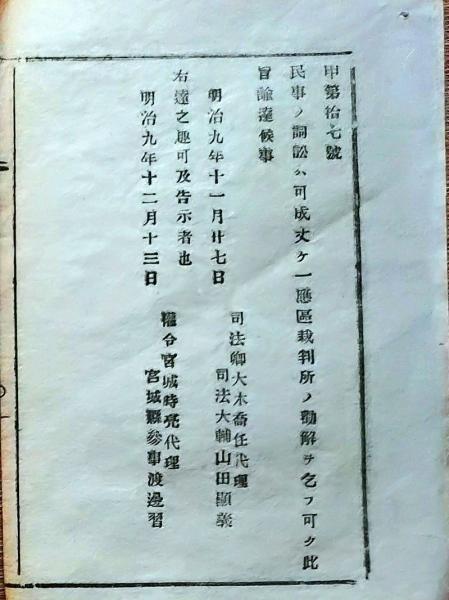 甲第拾七號
民事ノ詞訟ハ可成丈ケ一應區裁判所ノ勸解ヲ乞フ可ク此
旨諭達候事
明治九年十一月廿七日
司法卿大木喬任代理
司法大輔山田顯義
右達之趣可及告示者也
明治九年十二月十三日
權令宮城時亮代理
宮城縣參事渡邊習